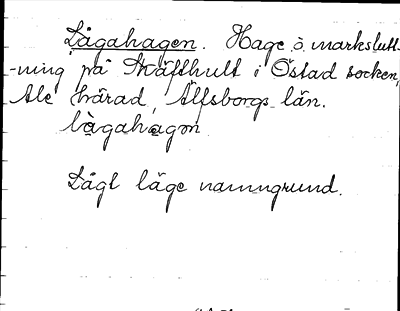 Lågahagen. Hage ö. markslutt-
-ning på Kräfthult i Östad socken,
Ale härad, Älfsborgs län.
lågahagon
Lågt läge namngrund.